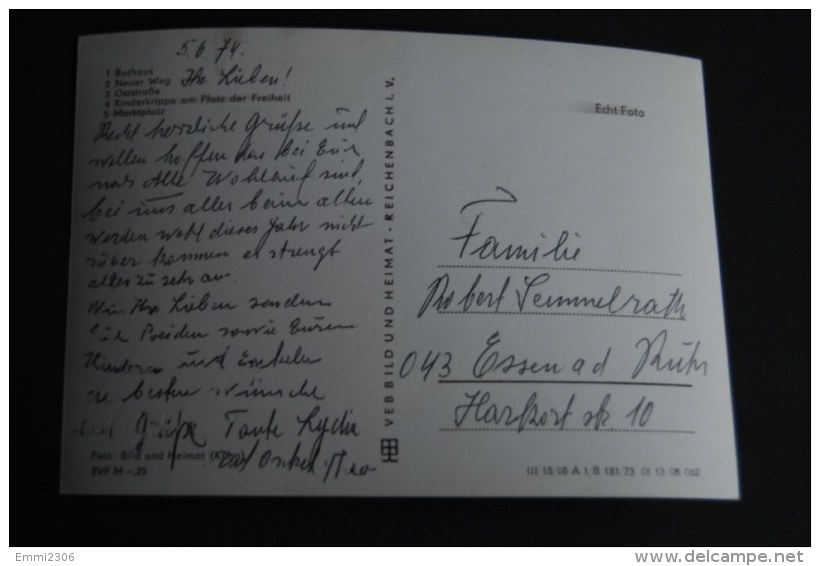 5.6.74.
1 Rathaus
2 Neuer Weg
3 Oststraße
4 Kinderkrippe am Platz der Freiheit
5 Marktplatz
Ihr Lieben!
Recht herzliche Grüße und
wollen hoffen das bei Euch
noch Alle Wohlauf sind,
bei uns alles beim alten
werden wohl dieses Jahr nicht
rüber kommen es strengt
alles zu sehr an.
Wir Ihr Lieben senden
Euch Beiden sowie Euren
Kindern und Enkeln
die besten Wünsche
und Grüße Tante Lydia
und Onkel
Foto: Bild und Heimat
EVP M -,25
VEB BILD UND HEIMAT · REICHENBACH I. V.
Echt Foto
Familie
Robert Semmelrath
043 Essen a d Ruhr
Harkort str 10
III 18 98 A 1 B 181/73 01 13 08 062
Emmi2306
delcampe.net